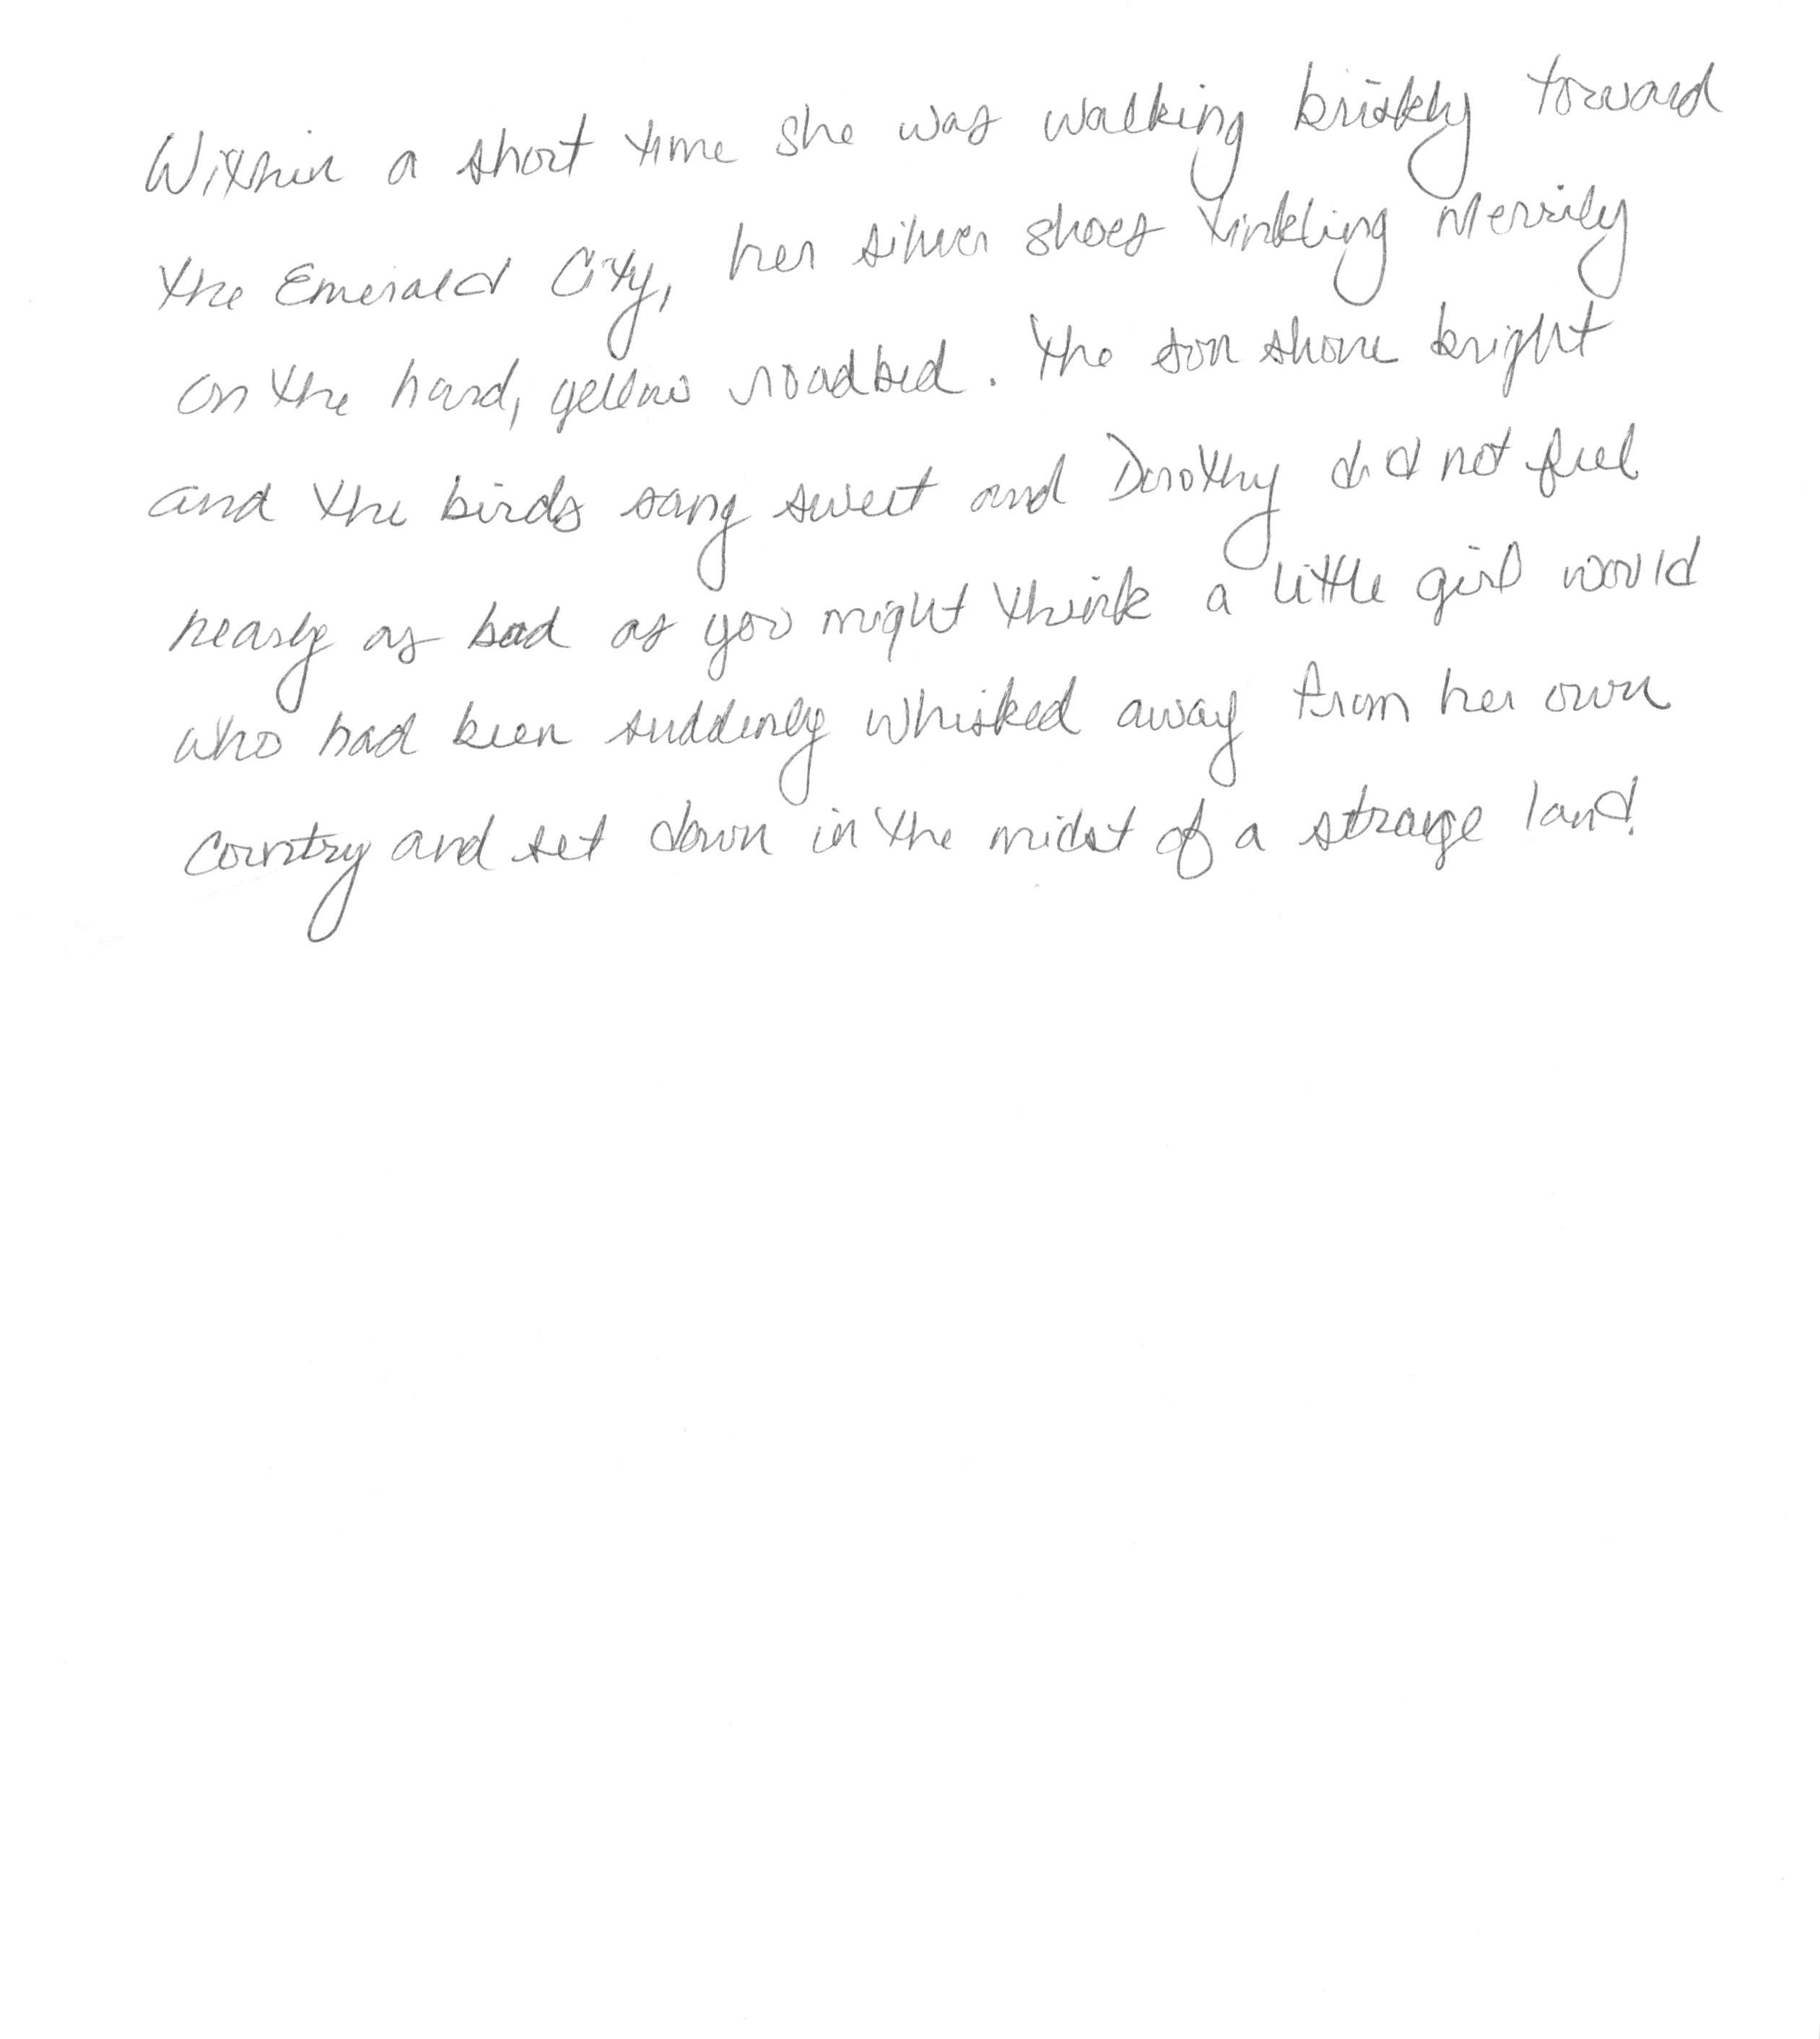 Within a short time she was walking briskly toward
the Emerald City, her silver shoes tinkling Merrily
on the hard, yellow roadbed. The sun shone bright
and the birds sang sweet and Dorothy did not feel
nearly as bad as you might think a little girl would
who had been suddenly whisked away from her own
country and set down in the midst of a strange land.